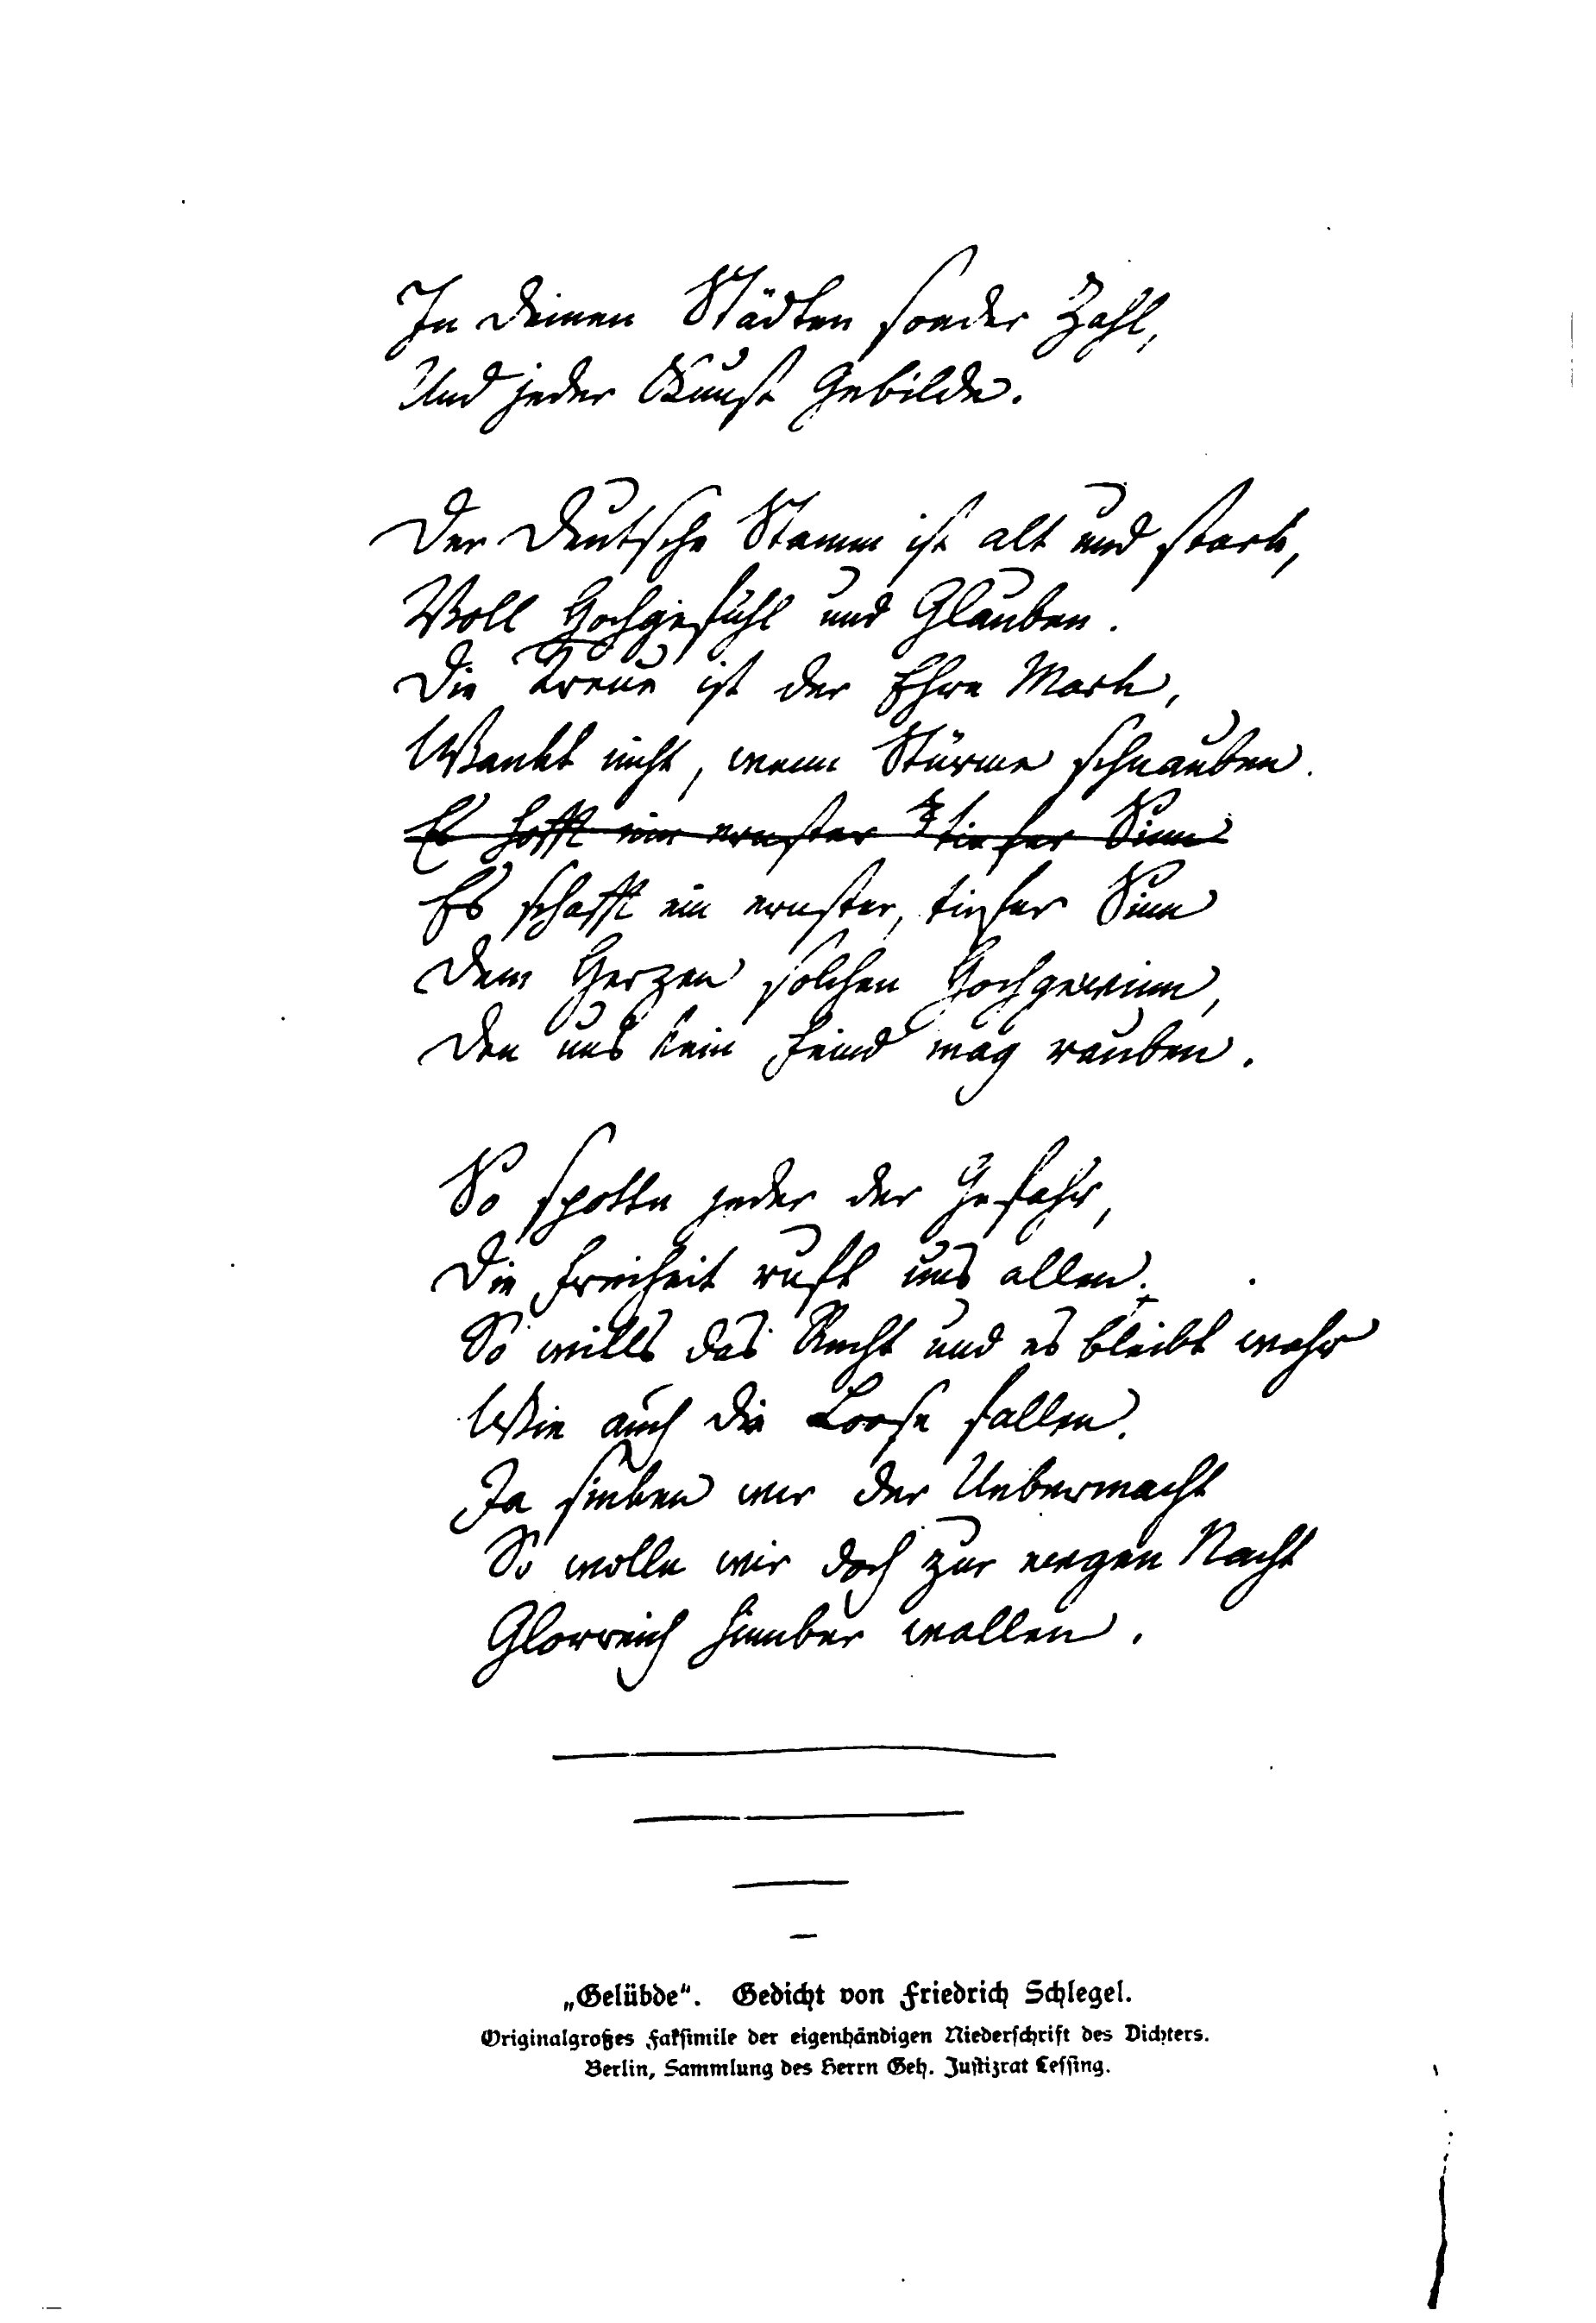 In deinen Städten sonder Zahl,
Und jeder Kunst Gebilde.
Der deutsche Stamm ist alt und stark,
Voll Hochgefühl und Glauben.
Die Treue ist der Ehre Mark,
Wankt nicht, wenn Stürme schnauben.
Es hofft ein ernster tiefer Sinn
Es schafft ein ernster, tiefer Sinn
Dem Herzen solchen Hochgewinn,
Den uns kein Feind mag rauben.
So spotte jeder der Gefahr,
Die Freiheit ruft uns allen.
So wills das Recht und es bleibt wahr
Wie auch die Loose fallen.
Ja sinken wir der Uebermacht
So wolln wir doch zur ewgen Nacht
Glorreich hinüber wallen.
„Gelübde“. Gedicht von Friedrich Schlegel.
Originalgroßes Faksimile der eigenhändigen Niederschrift des Dichters.
Berlin, Sammlung des Herrn Geh. Justizrat Lessing.